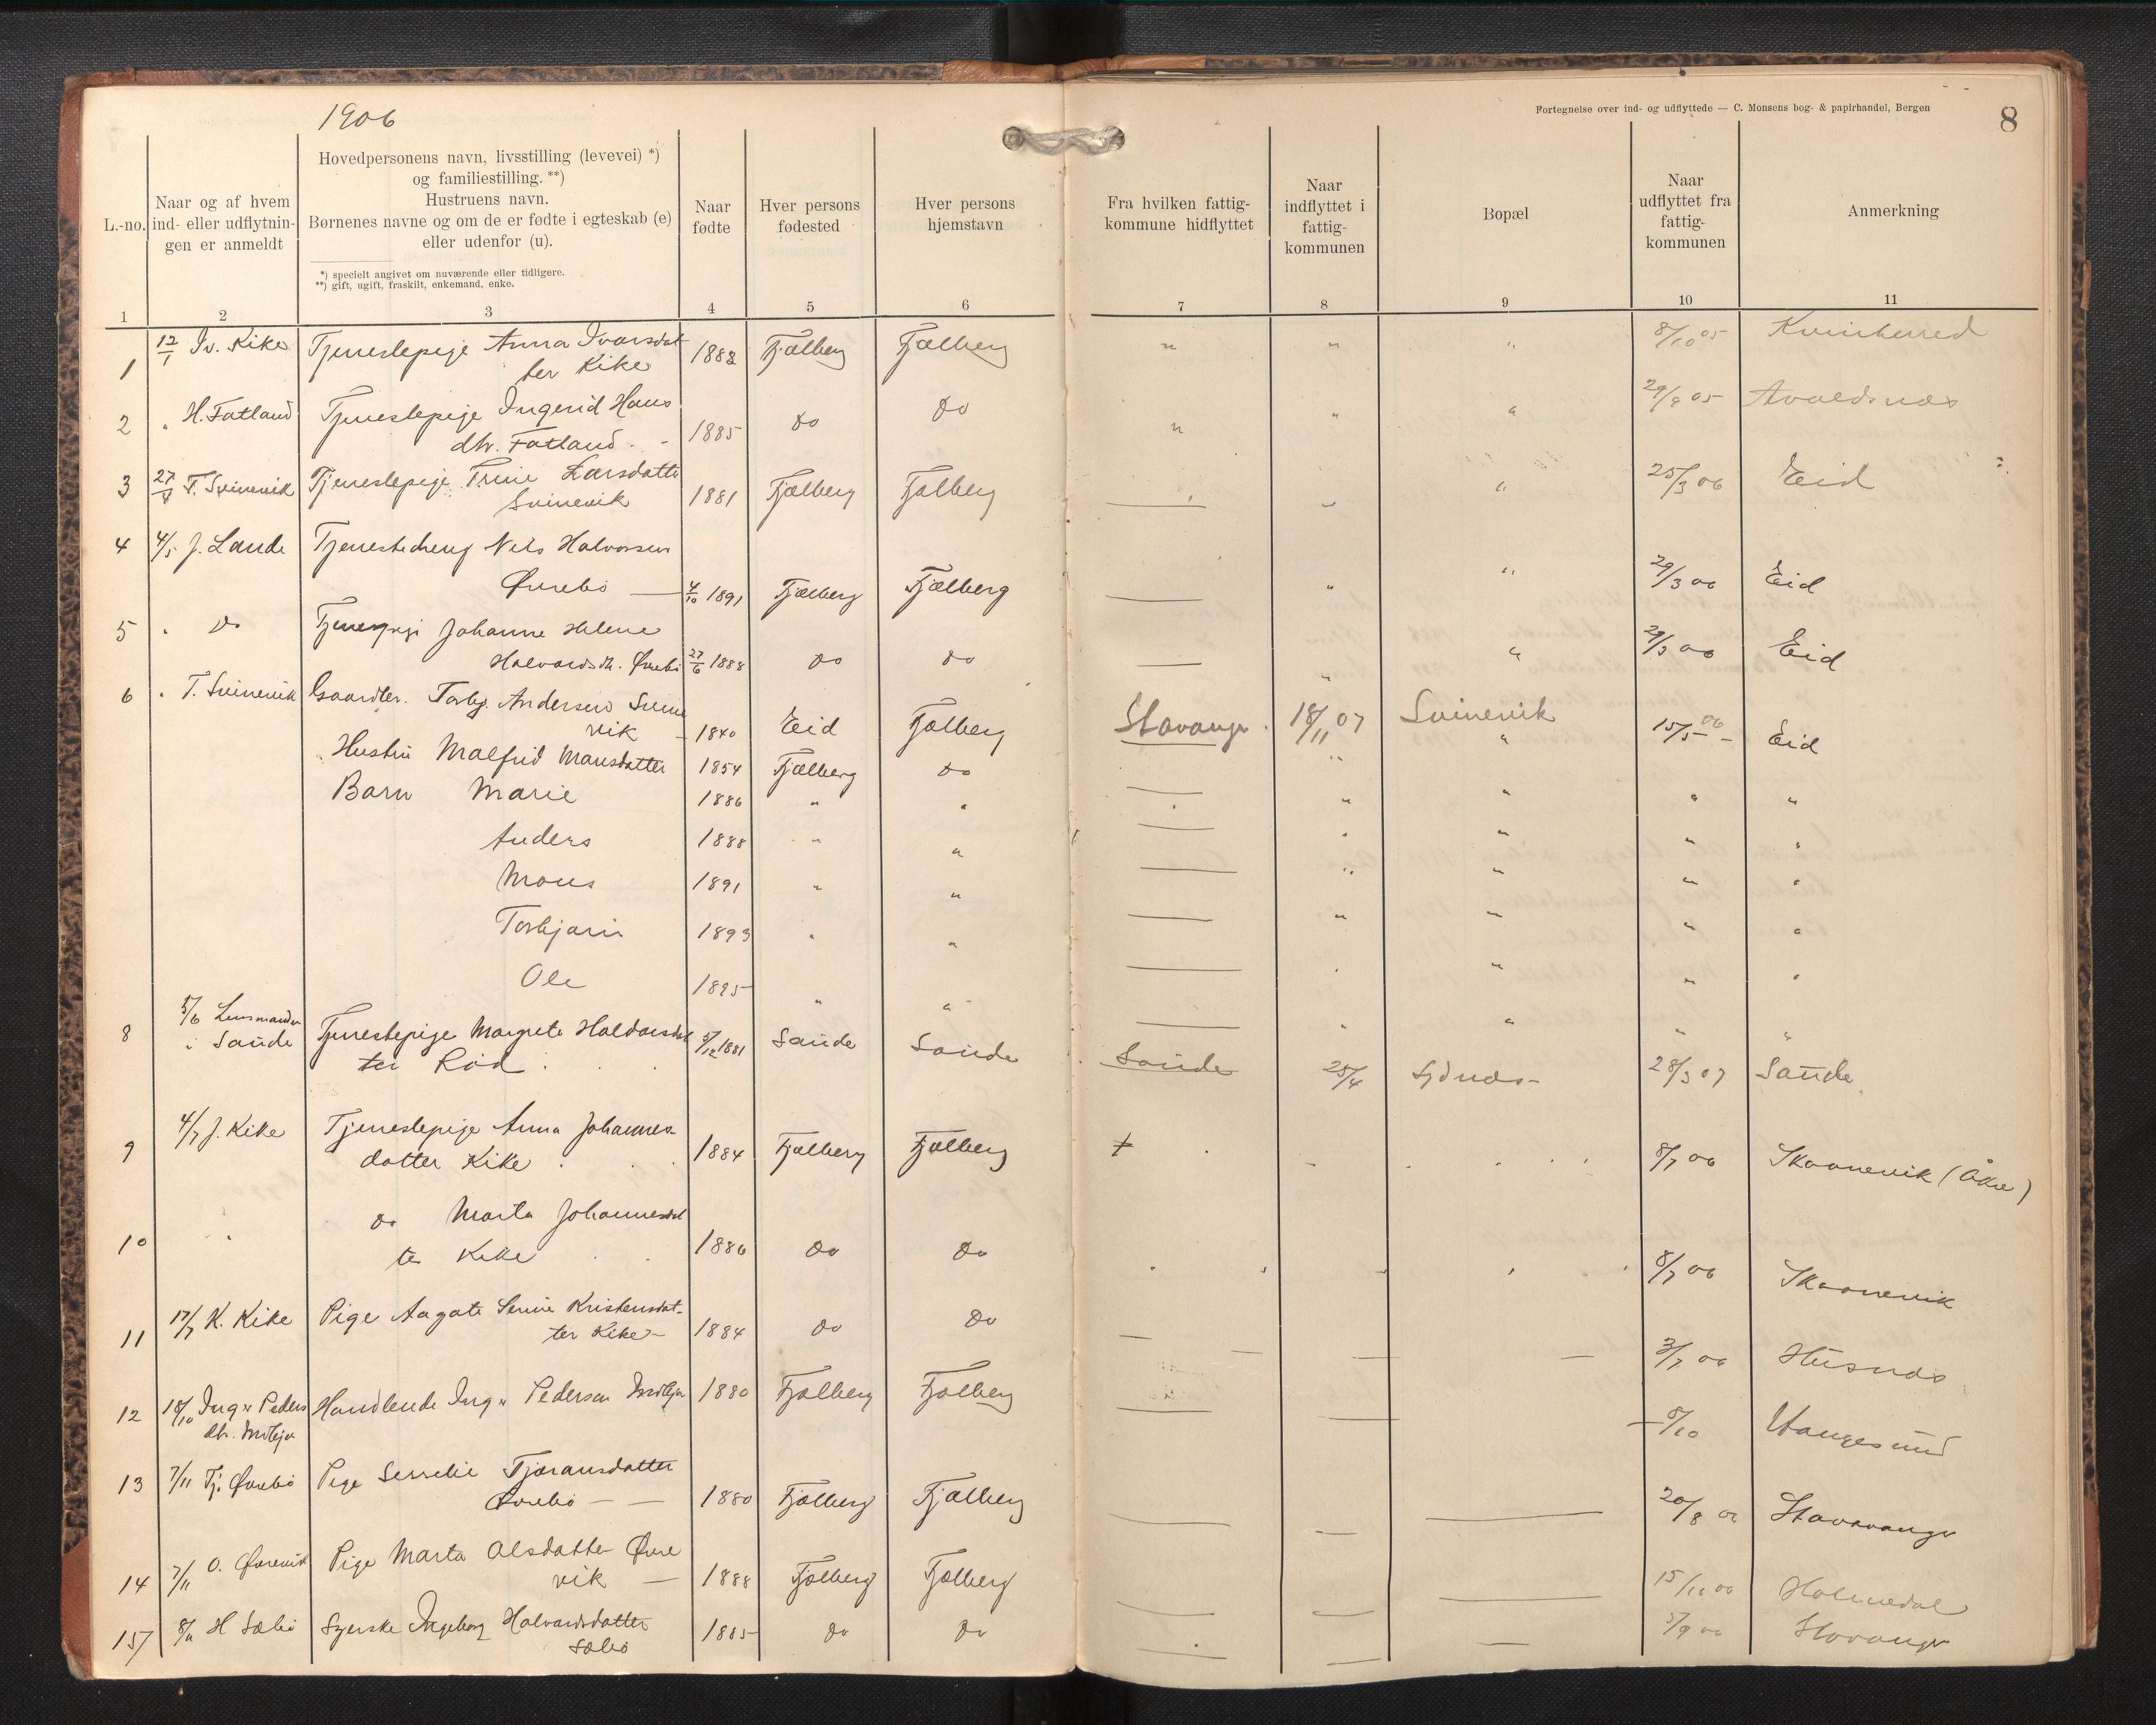 1906
Fortegnelse over ind- og udflyttede — C. Monsens bog- & papirhandel, Bergen
8
L.-no.
Naar og af hvem ind- eller udflytnin- gen er anmeldt
Hovedpersonens navn, livsstilling (levevei) *)
og familiestilling. **)
Hustruens navn.
Børnenes navne og om de er fødte i egteskab (e)
eller udenfor (u).
*) specielt angivet om nuværende eller tidligere.
**) gift, ugift, fraskilt, enkemand, enke.
Naar fødte
Hver persons fødested
Hver persons hjemstavn
Fra hvilken fattig- kommune hidflyttet
Naar indflyttet i fattig- kommunen
Bopæl
Naar udflyttet fra fattig- kommunen
Anmerkning
1 2 3 4 5 6 7 8 9 10 11
1 12/1 Iv. Kike Tjenestepige Anna Ivarsdat- 1882 Fjælberg Fjælberg " " " 8/10 05 Kvinherred
ter Kike
2 " H. Fatland Tjenestepige Ingerid Hans 1885 do do " " " 29/9 05 Avaldsnæs
dtr. Fatland
3 27/4 T. Svinevik Tjenestepige Trine Larsdatter 1881 Fjælberg Fjælberg — " " 25/3 06 Eid
Svinevik
4 4/5 J. Lande Tjenestedreng Nels Halvorsen
Øvrebö — 4/10 1891 Fjælberg Fjælberg — " " 29/3 06 Eid
5 " do Tjenestpige Johanne Helene
Halvardsdtr. Øvrebö 27/6 1888 do do — " " 29/3 06 Eid
6 " T. Svinevik Gaardbr. Torbj. Andersen Svine
vik — 1840 Eid Fjælberg Stavanger 18/11 07 Svinevik 15/5 06 Eid
Hustru Malfrid Monsdatter 1854 Fjælberg do — " "
Barn Marie 1886 " " — " " " "
Anders 1888 " " — " " " "
Mons 1891 " " — " " " "
Torbjørn 1893 " " — " " " "
Ole 1895 " " — " " " "
8 5/6 Lensmanden Tjenestepige Margrete Haldorsdat 5/12 1881 Saude Saude Saude 25/4 28/3 07 Saude
i Saude ter Röd
9 4/7 J. Kike Tjenestepige Anna Johannes- 1884 Fjælberg Fjælberg 8/7 06 Skaanevik (Åkre)
datter Kike
10 " do Marta Johannesdat 1886 do do 8/7 06 Skaanevik
te Kike
11 17/7 K. Kike Pige Aagate Serine Kristensdat- 1884 do do — — — — 3/7 06 Husnæs
ter Kike —
12 18/10 Ing. Peders Handlende Ing. Pedersen 1880 Fjælberg Fjælberg — — 8/10 Haugesund
dtr.
13 7/11 Tj. Øvrebö Pige Serselie Tjøransdatter
Øvrebö — — 1880 Fjælberg Fjælberg — — — 20/8 06 Stavanger
14 7/11 O. Øvrevik Pige Marta Olsdatter Øvre
vik — 1888 Fjælberg Fjælberg — — — 15/10 06 Holmedal
15 8/11 H Sæbö Syerske Ingeborg Halvardsdatter 1885 do do — — — 5/9 06 Stavanger
Sæbö